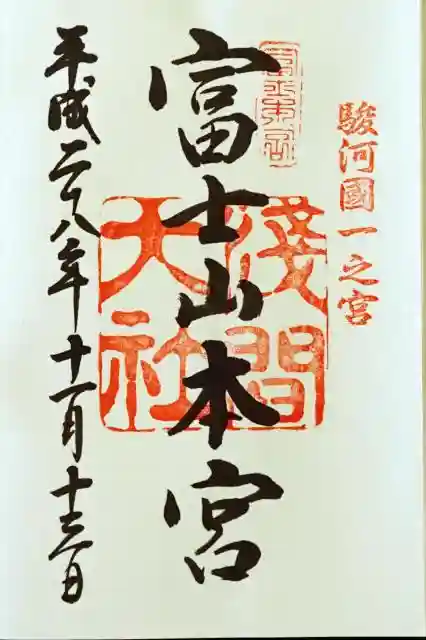 駿河國一之宮
富士山本宮
淺間
大社
平成二十八年十一月十三日